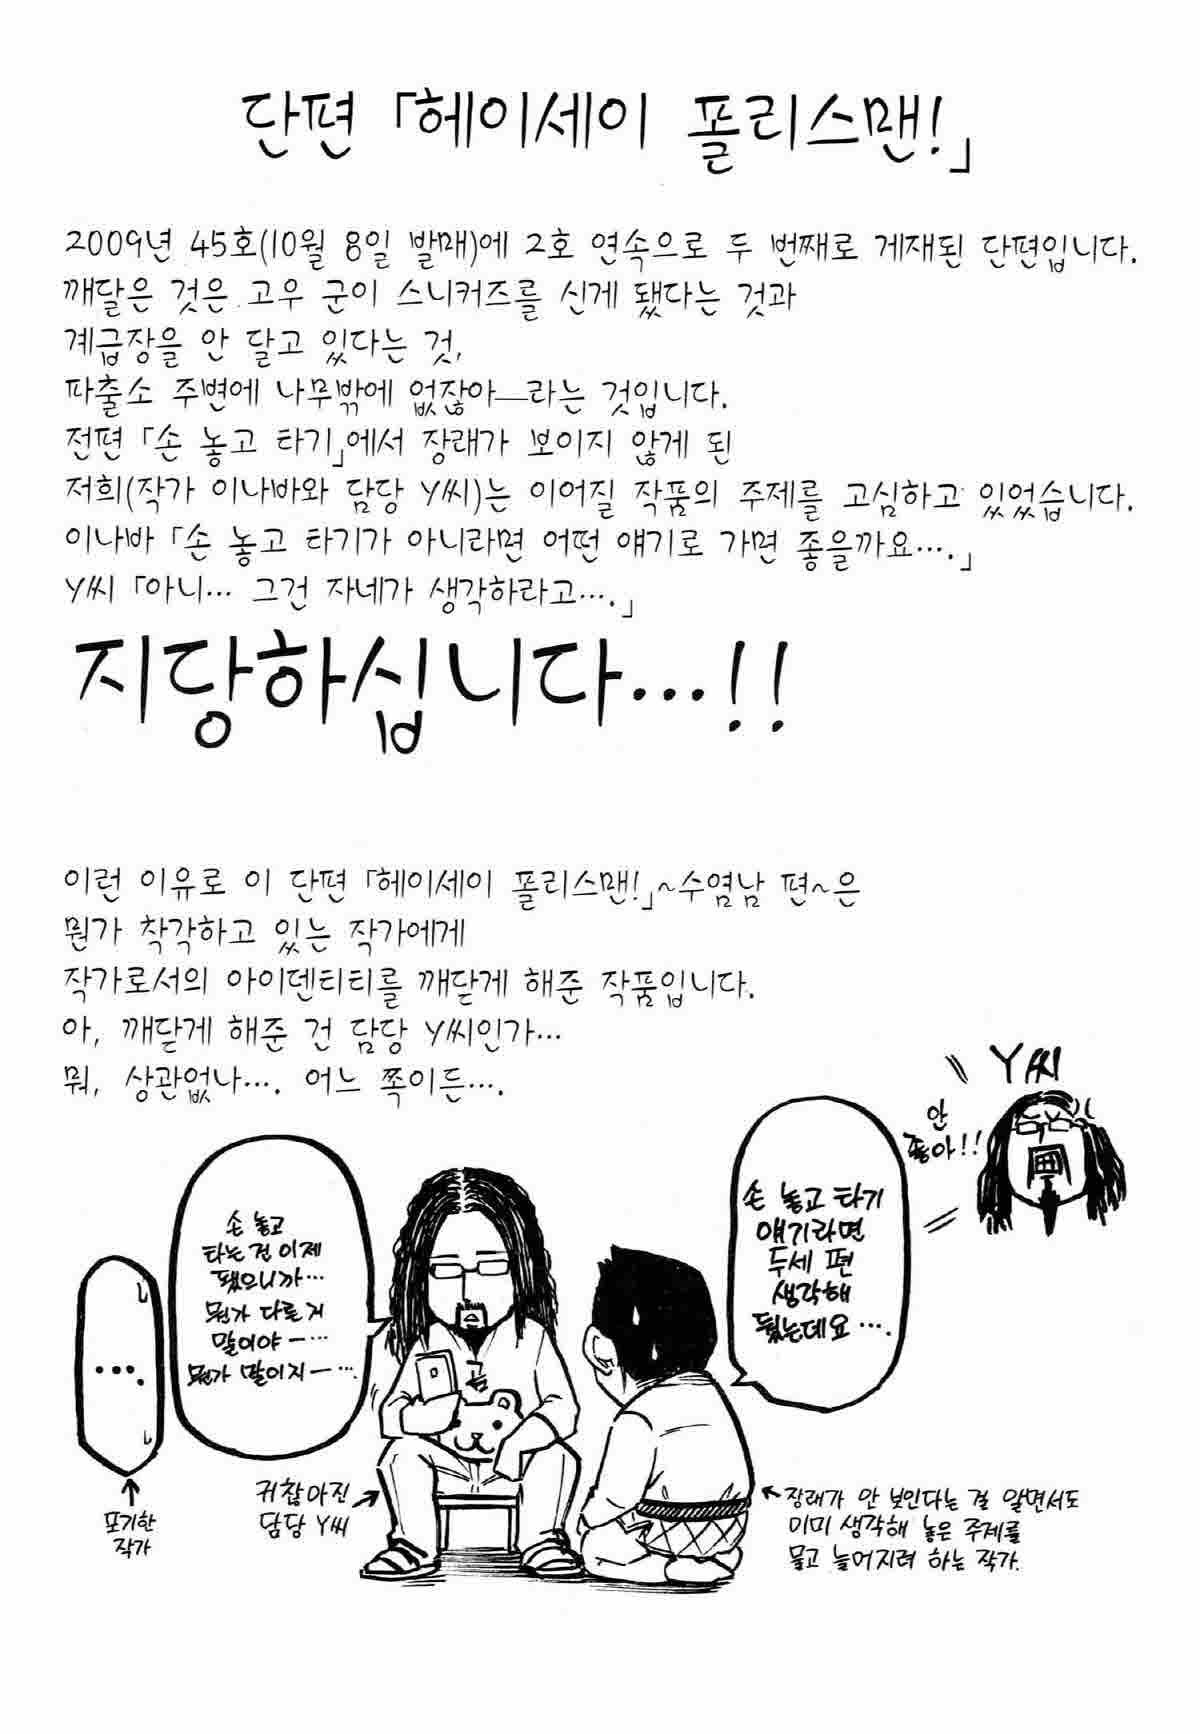 단편 「헤이세이 폴리스맨!」
2009년 45호(10월 8일 발매)에 2호 연속으로 두 번째로 게재된 단편입니다.
깨달은 것은 고우 군이 스니커즈를 신게 됐다는 것과
계급장을 안 달고 있다는 것,
파출소 주변에 나무밖에 없잖아—라는 것입니다.
전편 「손 놓고 타기」에서 장래가 보이지 않게 된
저희(작가 이나바와 담당 Y씨)는 이어질 작품의 주제를 고심하고 있었습니다.
이나바 「손 놓고 타기가 아니라면 어떤 얘기로 가면 좋을까요….」
Y씨 「아니… 그건 자네가 생각하라고….」
지당하십니다…!!
이런 이유로 이 단편 「헤이세이 폴리스맨!」~수염남 편~은
뭔가 착각하고 있는 작가에게
작가로서의 아이덴티티를 깨닫게 해준 작품입니다.
아, 깨닫게 해준 건 담당 Y씨인가…
뭐, 상관없나…. 어느 쪽이든….
Y씨
안
좋아!!
손 놓고 타기
얘기라면
두세 편
생각해
뒀는데요….
손 놓고
타는 건 이제
됐으니까…
뭔가 다른 거
말이야—…
뭔가 말이지—….
….
곰
포기한
작가
귀찮아진
담당 Y씨
장래가 안 보인다는 걸 알면서도
이미 생각해 놓은 주제를
물고 늘어지려 하는 작가.